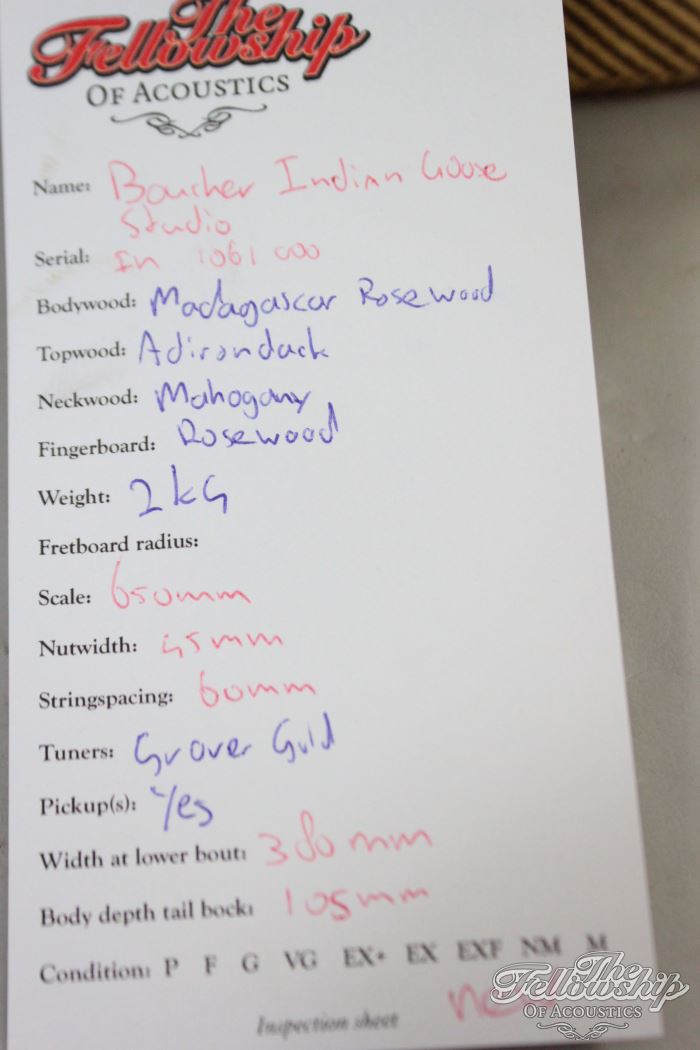 The
Fellowship
OF ACOUSTICS
Name: Boucher Indian Goose
Studio
Serial: In 1061 000
Bodywood: Madagascar Rosewood
Topwood: Adirondack
Neckwood: Mahogany
Fingerboard: Rosewood
Weight: 2kG
Fretboard radius:
Scale: 650mm
Nutwidth: 45mm
Stringspacing: 60mm
Tuners: Grover Gold
Pickup(s): Yes
Width at lower bout: 380mm
Body depth tail bock: 105mm
Condition: P F G VG EX+ EX EXF NM M
new
Inspection sheet
The
Fellowship
OF ACOUSTICS